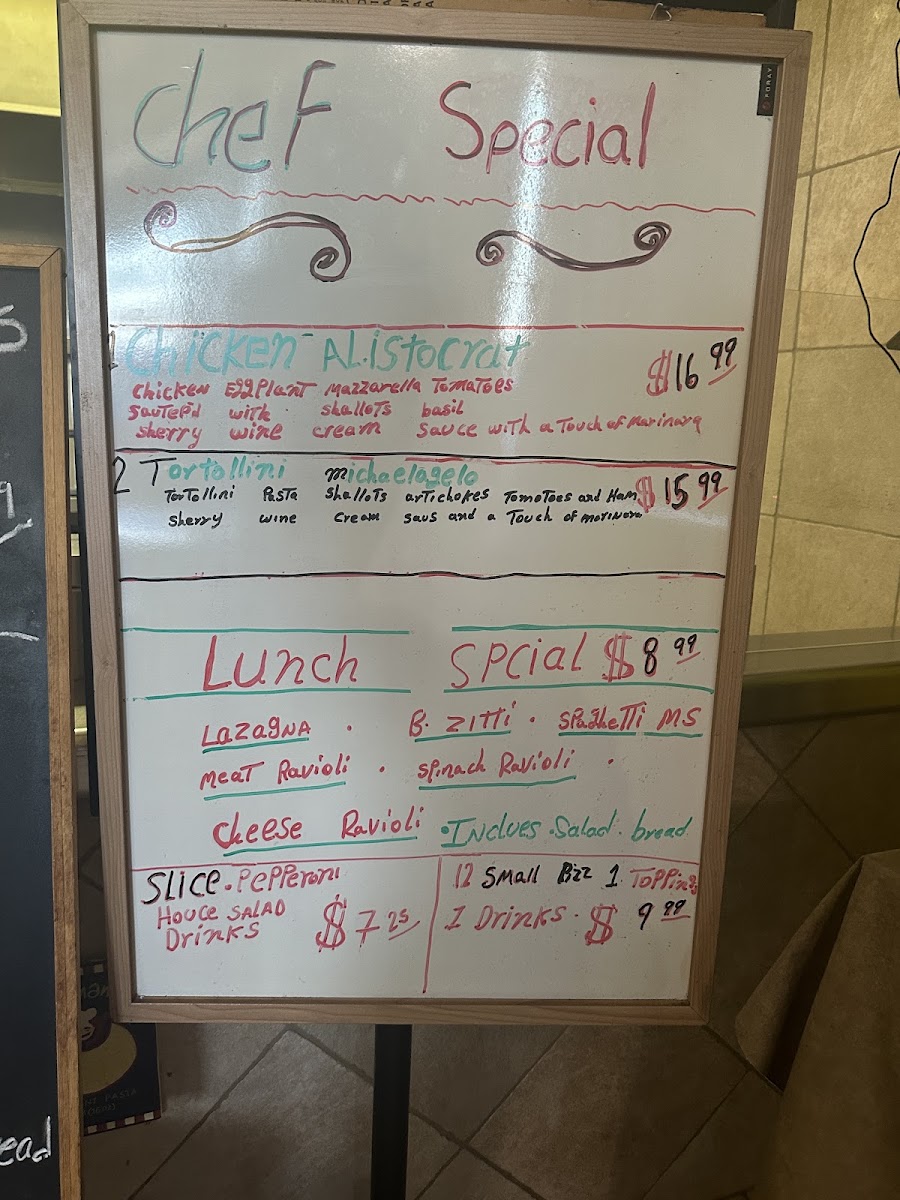 Chef Special
FORAY
1 Chicken Alistocrat $16 99
Chicken Eggplant Mazzarella Tomatoes
sautep'd with shallots basil
sherry wine cream sauce with a Touch of Marinara
2 Tortollini michaelagelo $15 99
Tortollini Pasta shallots artichokes Tomotoes and Ham
sherry wine cream saus and a Touch of marinara
Lunch SPCial $8 99
Lazagna . B. Zitti . Spaghetti M.S
meat Ravioli . Spinach Ravioli .
Cheese Ravioli . Inclues . Salad . bread
Slice . Pepperoni
Houce Salad
Drinks $7 25
12 Small Pizz 1 Topping
1 Drinks . $9 99
ead